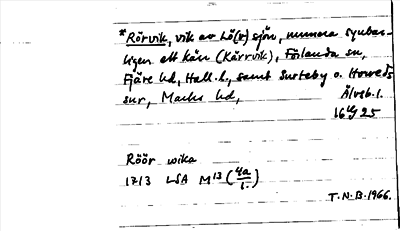 *Rörvik, vik av Lö(v)sjön, numera synbar-
ligen ett kärr (Kärrvik), Förlanda sn,
Fjäre hd, Hall. l., samt Surteby o. Horreds
snr, Marks hd, Älvsb. l.
16 25
Röör wika
1713 LSA M13 (4a/1.)
T.N.B. 1966.